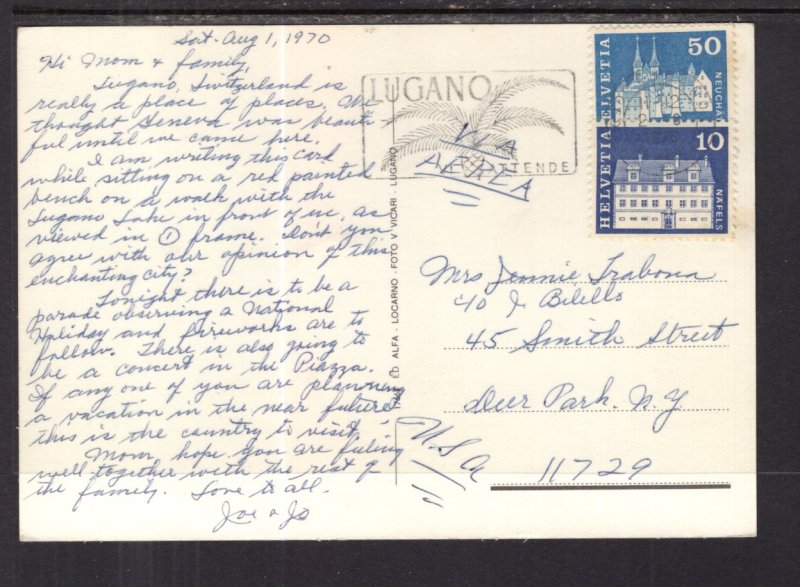 Sat. Aug 1, 1970
Hi Mom & family,
Lugano, Switzerland is
really a place of places. We
thought Geneva was beauti-
ful until we came here.
I am writing this card
while sitting on a red painted
bench on a walk with the
Lugano Lake in front of us, as
viewed in ① frame. Don't you
agree with our opinion of this
enchanting city?
Tonight there is to be a
parade observing a National
Holiday and fireworks are to
follow. There is also going to
be a concert in the Piazza.
If any one of you are planning
a vacation in the near future
this is the country to visit.
Mom, hope you are feeling
well together with the rest of
the family. Love to all.
Joe & Jo
17468 ED ALFA - LOCARNO - FOTO V VICARI - LUGANO
LUGANO
TENDE
VIA
AEREA
HELVETIA
50
NEUCHÂTEL
HELVETIA
10
NÄFELS
Mrs Jennie Trabona
c/o J. Bilello
45 Smith Street
Deer Park. N.Y
11729
U.S.A